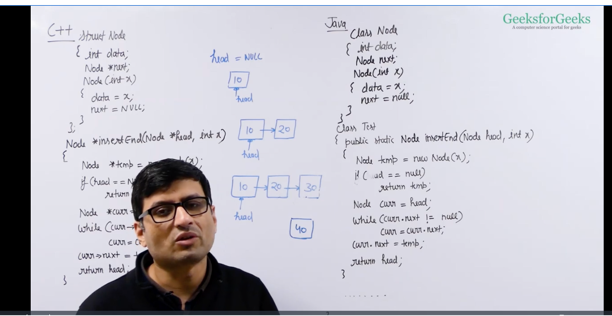 C++
Struct Node
{ int data;
Node *next;
Node(int x)
{
data = x;
next = NULL;
}
};
Node *insertEnd(Node *head, int x)
{
Node *temp =
if(head == N
return
Node *curr =
while (curr
curr = c
curr->next = t
return head;
}
head = NULL
10
head
10 20
head
10 20 30
head
40
Java
Class Node
{ int data;
Node next;
Node(int x)
{ data = x;
next = null;
}
}
Class Test
{ public static Node insertEnd(Node head, int x)
{ Node temp = new Node(x);
if ( == null)
return temp;
Node curr = head;
while (curr.next != null)
curr = curr.next;
curr.next = temp;
return head;
}
........
GeeksforGeeks
A computer science portal for geeks